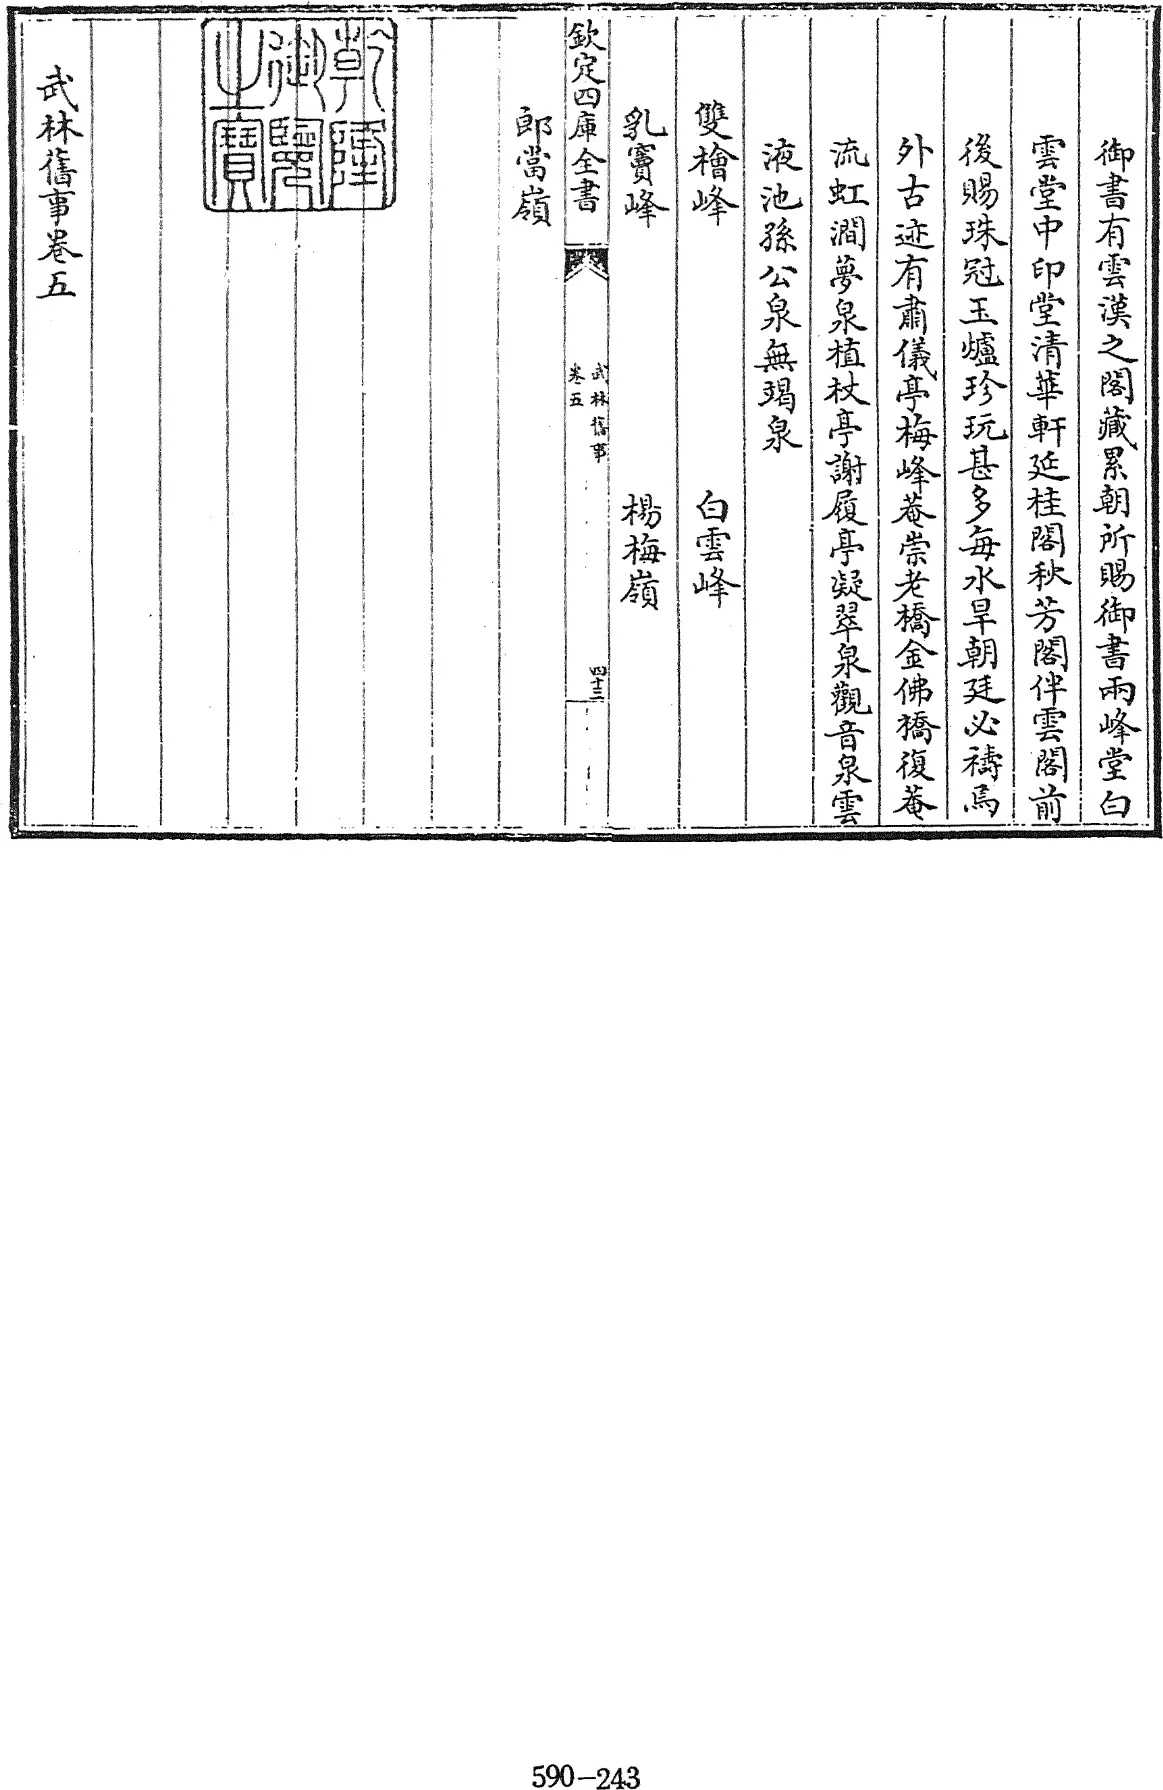 御書有雲漢之閣藏累朝所賜御書兩峰堂白
雲堂中印堂清華軒延桂閣秋芳閣伴雲閣前
後賜珠冠玉爐珍玩甚多每水旱朝廷必禱焉
外古迹有肅儀亭梅峰菴崇老橋金佛橋復菴
流虹澗夢泉植杖亭謝履亭凝翠泉觀音泉雲
液池孫公泉無竭泉
雙檜峰 白雲峰
乳竇峰 楊梅嶺
欽定四庫全書
武林舊事
卷五
四十三
郎當嶺
乾隆御覽之寶
武林舊事卷五
590-243